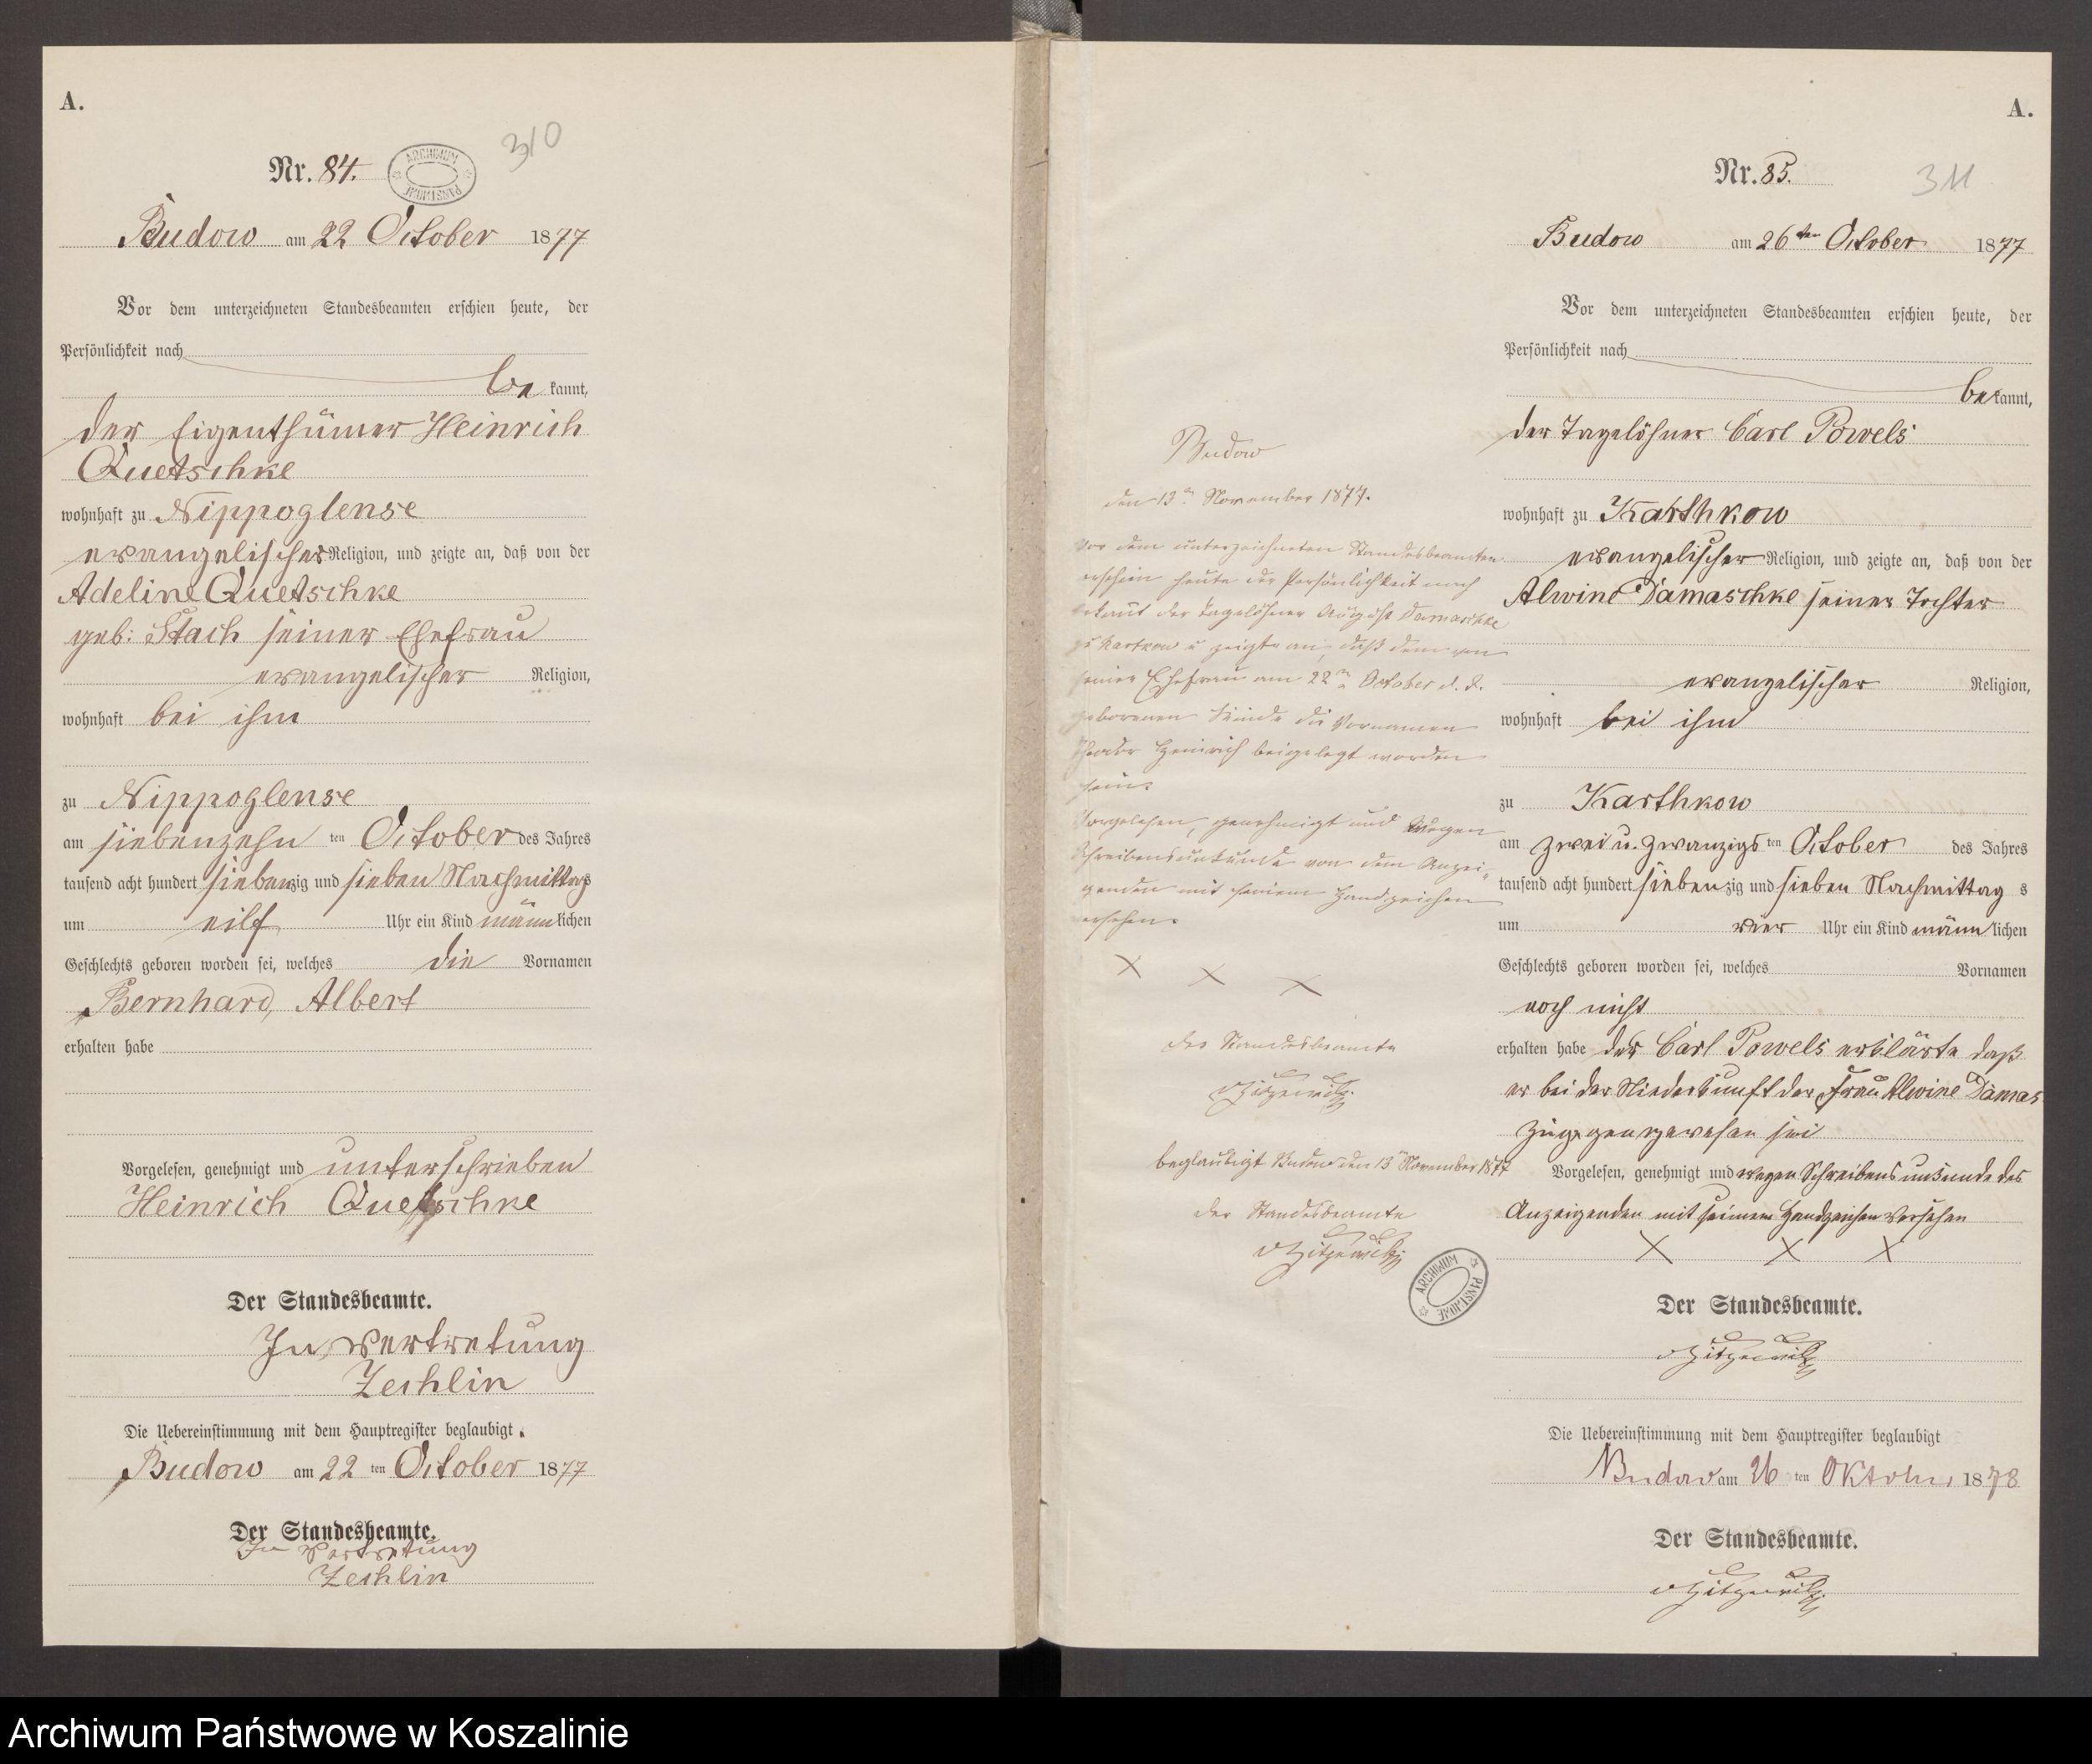 A.
Nr. 84.
ARCHIWUM PAŃSTWOWE
310
Budow am 22 October 1877
Vor dem unterzeichneten Standesbeamten erschien heute, der
Persönlichkeit nach
be kannt,
der Eigenthümer Heinrich
Quetschke
wohnhaft zu Nippoglense
evangelischer Religion, und zeigte an, daß von der
Adeline Quetschke
geb: Stach seiner Ehefrau
evangelischer Religion,
wohnhaft bei ihm
zu Nippoglense
am siebenzehn ten October des Jahres
tausend acht hundert siebenzig und sieben Nachmittags
um eilf Uhr ein Kind männlichen
Geschlechts geboren worden sei, welches die Vornamen
Bernhard, Albert
erhalten habe
Vorgelesen, genehmigt und unterschrieben
Heinrich Quetschke
Der Standesbeamte.
In Vertretung
Zechlin
Die Uebereinstimmung mit dem Hauptregister beglaubigt.
Budow am 22 ten October 1877
Der Standesbeamte.
In Vertretung
Zechlin
Budow
den 13ten November 1877.
Vor dem unterzeichneten Standesbeamten
erschien heute der Persönlichkeit nach
bekannt der Tagelöhner August Damaschke
zu Kartkow u zeigte an, daß dem von
seiner Ehefrau am 22ten October d. J.
geborenen Kinde die Vornamen
Heinrich beigelegt worden
seien.
Vorgelesen, genehmigt und wegen
Schreibensunkunde von dem Anzei-
genden mit seinem Handzeichen
versehen.
X X X
Der Standesbeamte
v Zitzewitz
beglaubigt Budow den 13ten November 1877
Der Standesbeamte
v Zitzewitz
ARCHIWUM PAŃSTWOWE
A.
Nr. 85.
311
Budow am 26ten October 1877
Vor dem unterzeichneten Standesbeamten erschien heute, der
Persönlichkeit nach
be kannt,
der Tagelöhner Carl Powels
wohnhaft zu Karthkow
evangelischer Religion, und zeigte an, daß von der
Alwine Damaschke seiner Tochter
evangelischer Religion,
wohnhaft bei ihm
zu Karthkow
am zwei u. zwanzigs ten October des Jahres
tausend acht hundert siebenzig und sieben Nachmittag s
um vier Uhr ein Kind männlichen
Geschlechts geboren worden sei, welches Vornamen
noch nicht
erhalten habe der Carl Powels erklärte daß
er bei der Niederkunft der Frau Alwine Damas
zugegen gewesen sei
Vorgelesen, genehmigt und wegen Schreibensunkunde des
Anzeigenden mit seinem Handzeichen versehen
X X X
Der Standesbeamte.
v Zitzewitz
Die Uebereinstimmung mit dem Hauptregister beglaubigt
Budow am 26 ten Oktober 1878
Der Standesbeamte.
v Zitzewitz
Archiwum Państwowe w Koszalinie